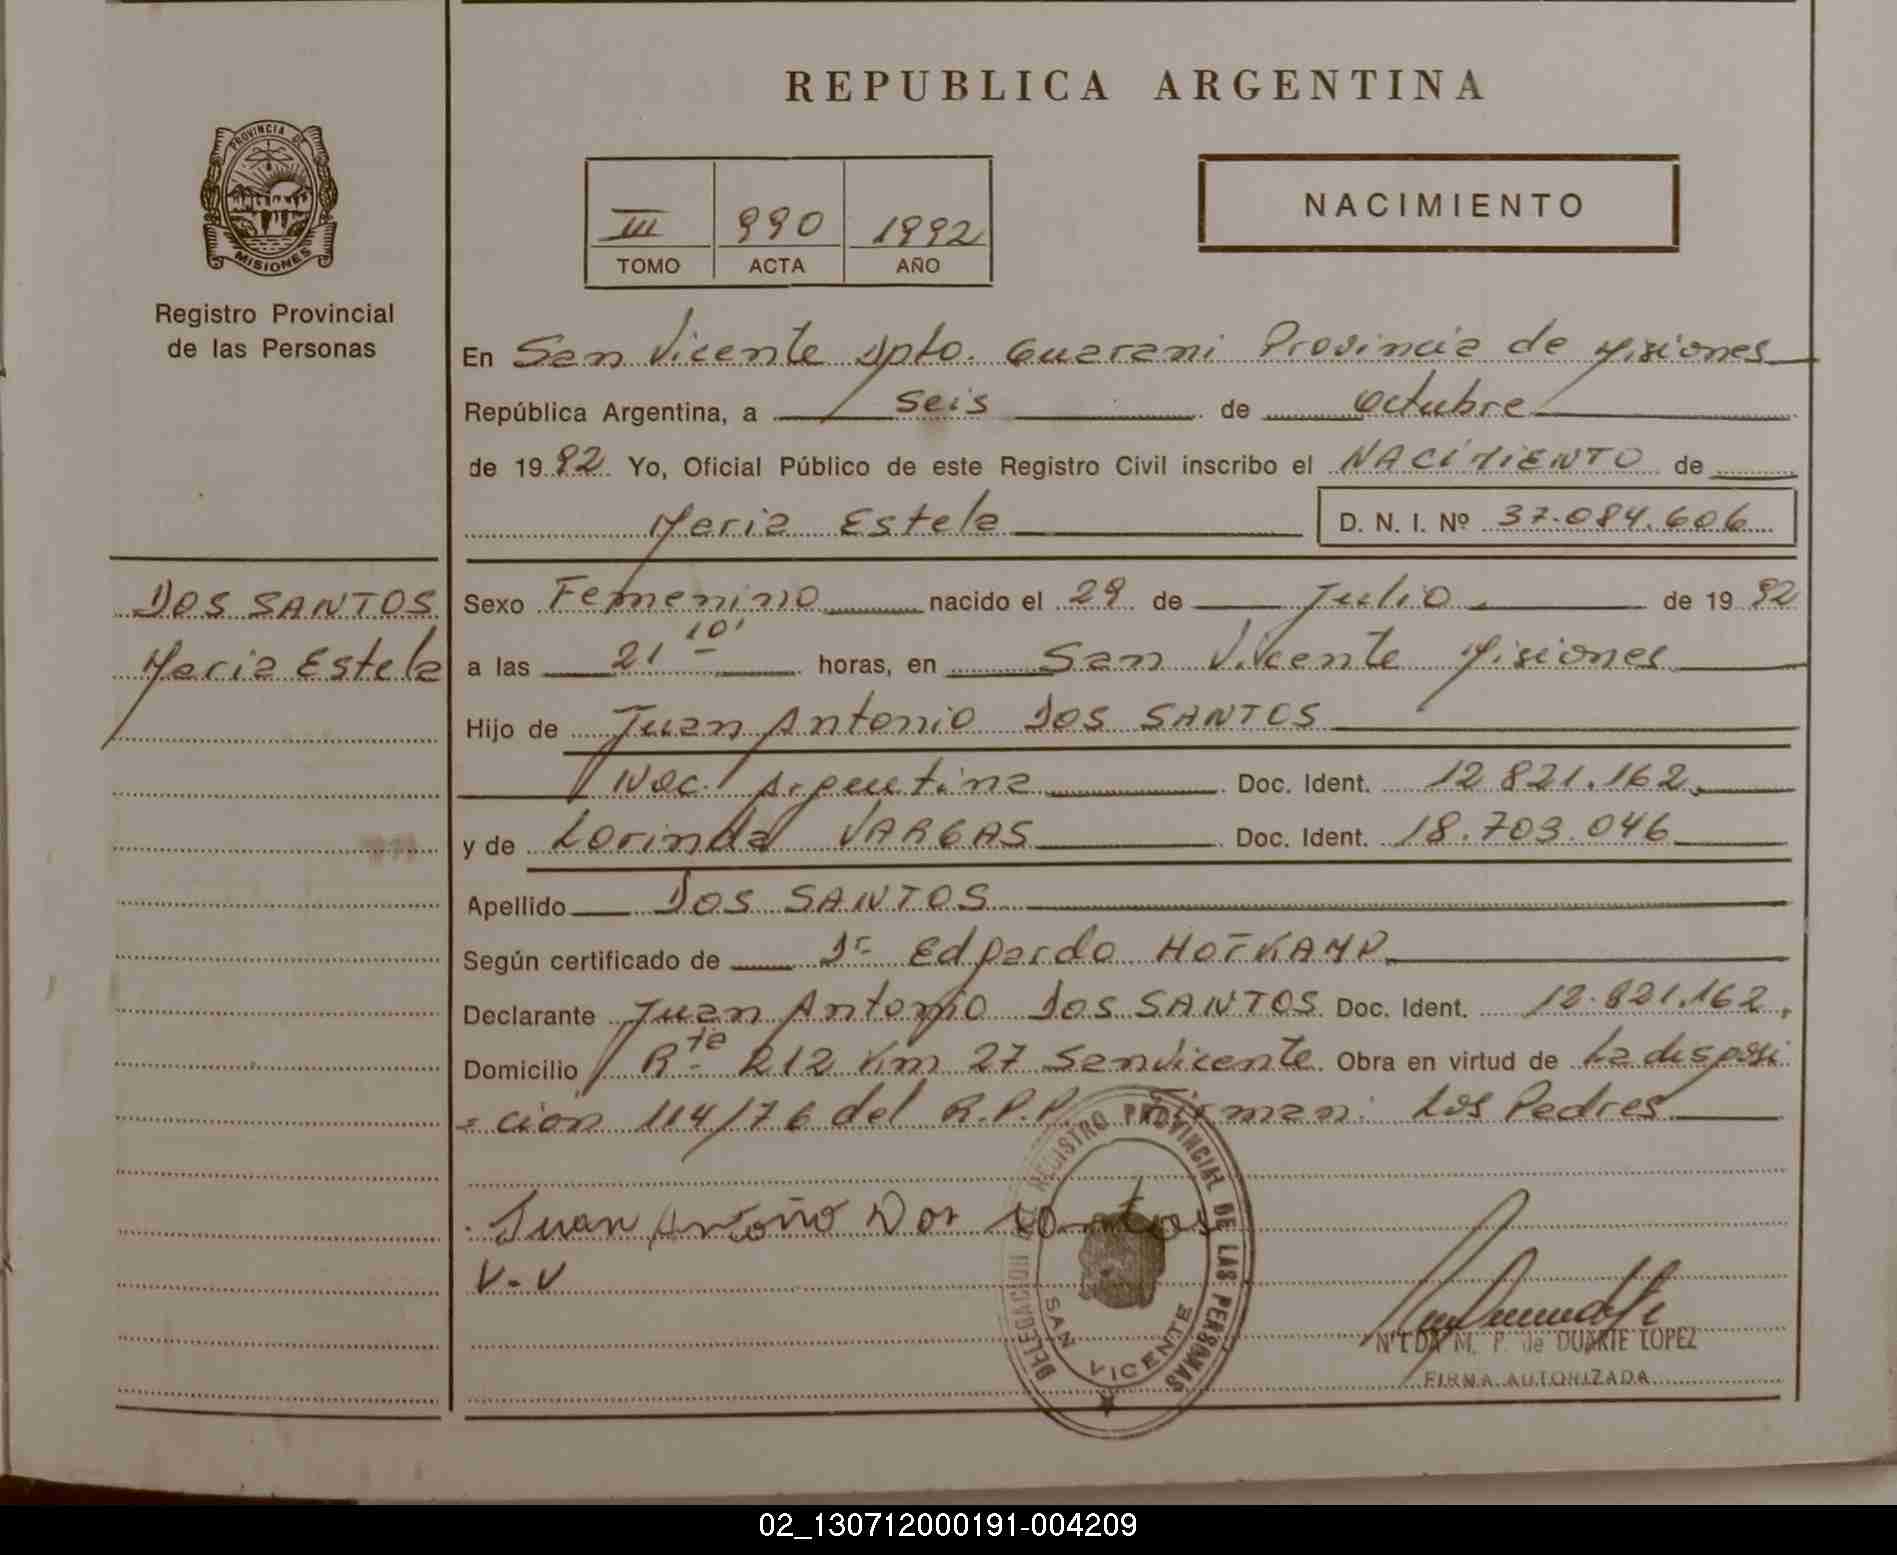 REPUBLICA ARGENTINA
PROVINCIA DE
MISIONES
Registro Provincial
de las Personas
III 990 1992
TOMO ACTA AÑO
NACIMIENTO
En San Vicente Dpto. Guarani Provincia de Misiones
República Argentina, a seis de octubre
de 1992 Yo, Oficial Público de este Registro Civil inscribo el NACIMIENTO de
Maria Estela D. N. I. Nº 37.084.606
DOS SANTOS
Maria Estela
Sexo Femenino nacido el 29 de Julio de 1992
a las 21 10' horas, en San Vicente Misiones
Hijo de Juan Antonio DOS SANTOS
Nac. Argentina Doc. Ident. 12.821.162
y de Lorinda VARGAS Doc. Ident. 18.703.046
Apellido DOS SANTOS
Según certificado de Dr Edgardo HOFKAMP
Declarante Juan Antonio DOS SANTOS Doc. Ident. 12.821.162.
Domicilio Rta 212 Km 27 San Vicente Obra en virtud de La disposi
=cion 114/76 del R.P.P. Firman: Los Padres
Juan Antoño Dos santos
V-V
DELEGACION REGISTRO PROVINCIAL DE LAS PERSONAS
SAN VICENTE
NILDA M. P. de DUARTE LOPEZ
FIRMA AUTORIZADA
02_130712000191-004209